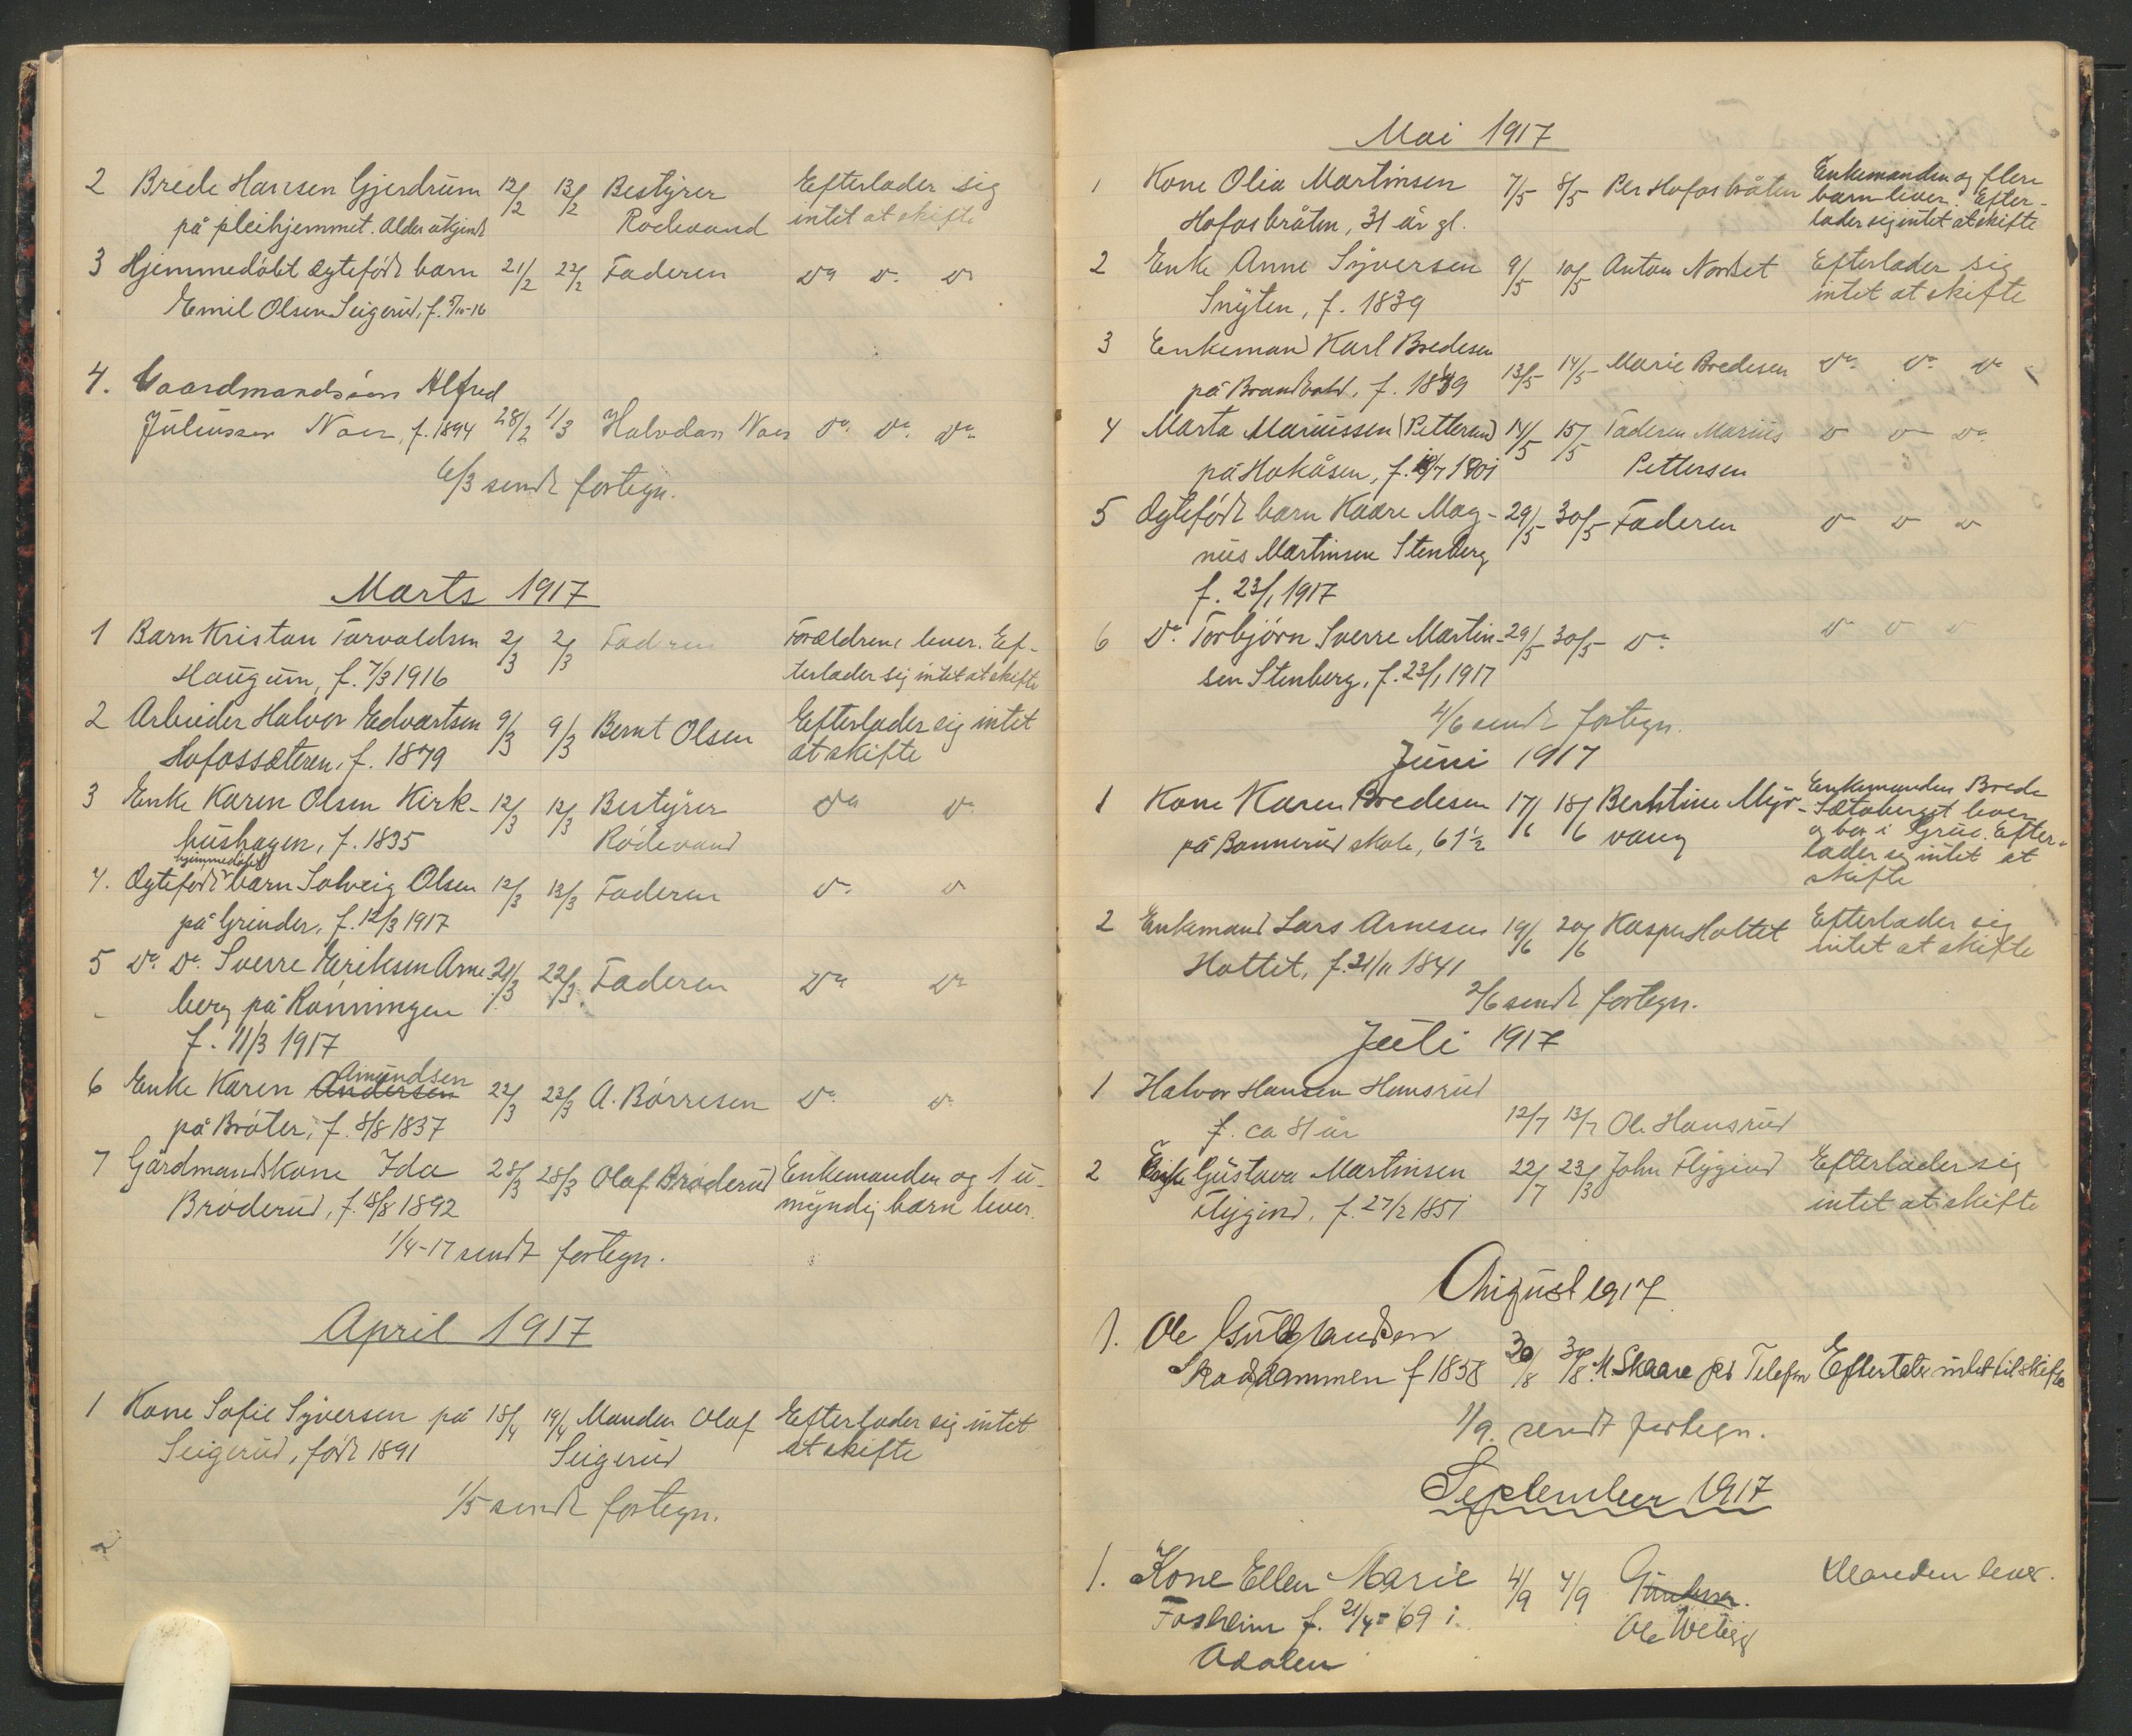 2 Brede Hansen Gjerdrum 12/2 13/2 Bestyrer Efterlader sig
på pleihjemmet. Alder ukjendt Rödevand intet at skifte
3 Hjemmedöbt ægtefödt barn 21/2 22/2 Faderen Do Do Do
Emil Olsen Seigerud, f. -16
4. Gaardmandssön Alfred
Juliussen Noer, f. 1894 28/2 1/3 Halvdan Noer Do Do Do
6/3 sendt fortegn.
Marts 1917
1 Barn Kristan Torvaldsen 2/3 2/3 Faderen Forældrene lever. Ef-
Haugum, f. 7/3 1916 terlader sig intet at skifte
2 Arbeider Halvor Edvartsen 9/3 9/3 Bernt Olsen Efterlader sig intet
Hofossæteren, f. 1879 at skifte
3 Enke Karen Olsen Kirk- 12/3 12/3 Bestyrer Do Do
hushagen, f. 1835 Rödevand
hjemmedöbt
4. Ægtefödt barn Solveig Olsen 12/3 13/3 Faderen Do Do
på Grinder, f. 12/3 1917
5 Do Do Sverre Eriksen Arne- 21/3 22/3 Faderen Do Do
berg på Rönningen
f. 11/3 1917
Amundsen
6 Enke Karen Andersen 22/3 23/3 A. Börresen Do Do
på Bröter, f. 8/8 1837
7 Gårdmandskone Ida 28/3 28/3 Olaf Bröderud Enkemanden og 1 u-
Bröderud, f. 18/8 1892 myndig barn lever.
1/4-17 sendt fortegn.
April 1917
1 Kone Sofie Syversen på 18/4 19/4 Manden Olaf Efterlader sig intet
Seigerud, födt 1891 Seigerud at skifte
1/5 sendt fortegn.
Mai 1917
1 Kone Olia Martinsen 7/5 8/5 Per Hofosbråten Enkemanden og flere
Hofosbråten, 31 år gl. barn lever. Efter-
lader sig intet at skifte
2 Enke Anne Syversen 9/5 10/5 Anton Norset Efterlader sig
Snyten, f. 1839 intet at skifte
3 Enkemand Karl Bredesen
på Brandvold, f. 1839 13/5 14/5 Marie Bredesen Do Do Do
4 Marta Mariussen (Pettersen) 14/5 15/5 Faderen Marius Do Do Do
på Hokåsen, f. 1901 Pettersen
5 Ægtefödt barn Kaare Mag- 29/5 30/5 Faderen Do Do Do
nus Martinsen Stenberg
f. 23/1 1917
6 Do Torbjörn Sverre Martin- 29/5 30/5 Do Do Do Do
sen Stenberg, f. 23/1 1917
4/6 sendt fortegn.
Juni 1917
1 Kone Karen Bredesen 17/6 18/6 Berhtine Myr- Enkemanden Brede
på Bonnerud skole, 61 1/2 vang Sætaberget lever
og bor i Grue. Efter-
lader sig intet at
skifte
2 Enkemand Lars Arnesen 19/6 20/6 Kasper Holtet Efterlader sig
Holtet, f. 21/11 1841 intet at skifte
2/6 sendt fortegn.
Juli 1917
1 Halvor Hansen Hansrud
f. ca 81 år 12/7 13/7 Ole Hansrud
2 Enke Gustava Martinsen 22/7 23/3 John Flygind Efterlader sig
Flygind, f. 27/2 1851 intet at skifte
August 1917
1. Ole Gulbrandsen
Skaddammen f 1858 30/8 30/8 M. Skaare per Telefon Efterlater intet til skifte
1/9. sendt fortegn.
September 1917
1. Kone Ellen Marie 4/9 4/9 Manden lever.
Fosheim f. 21/4-69 i Ole
Adalen